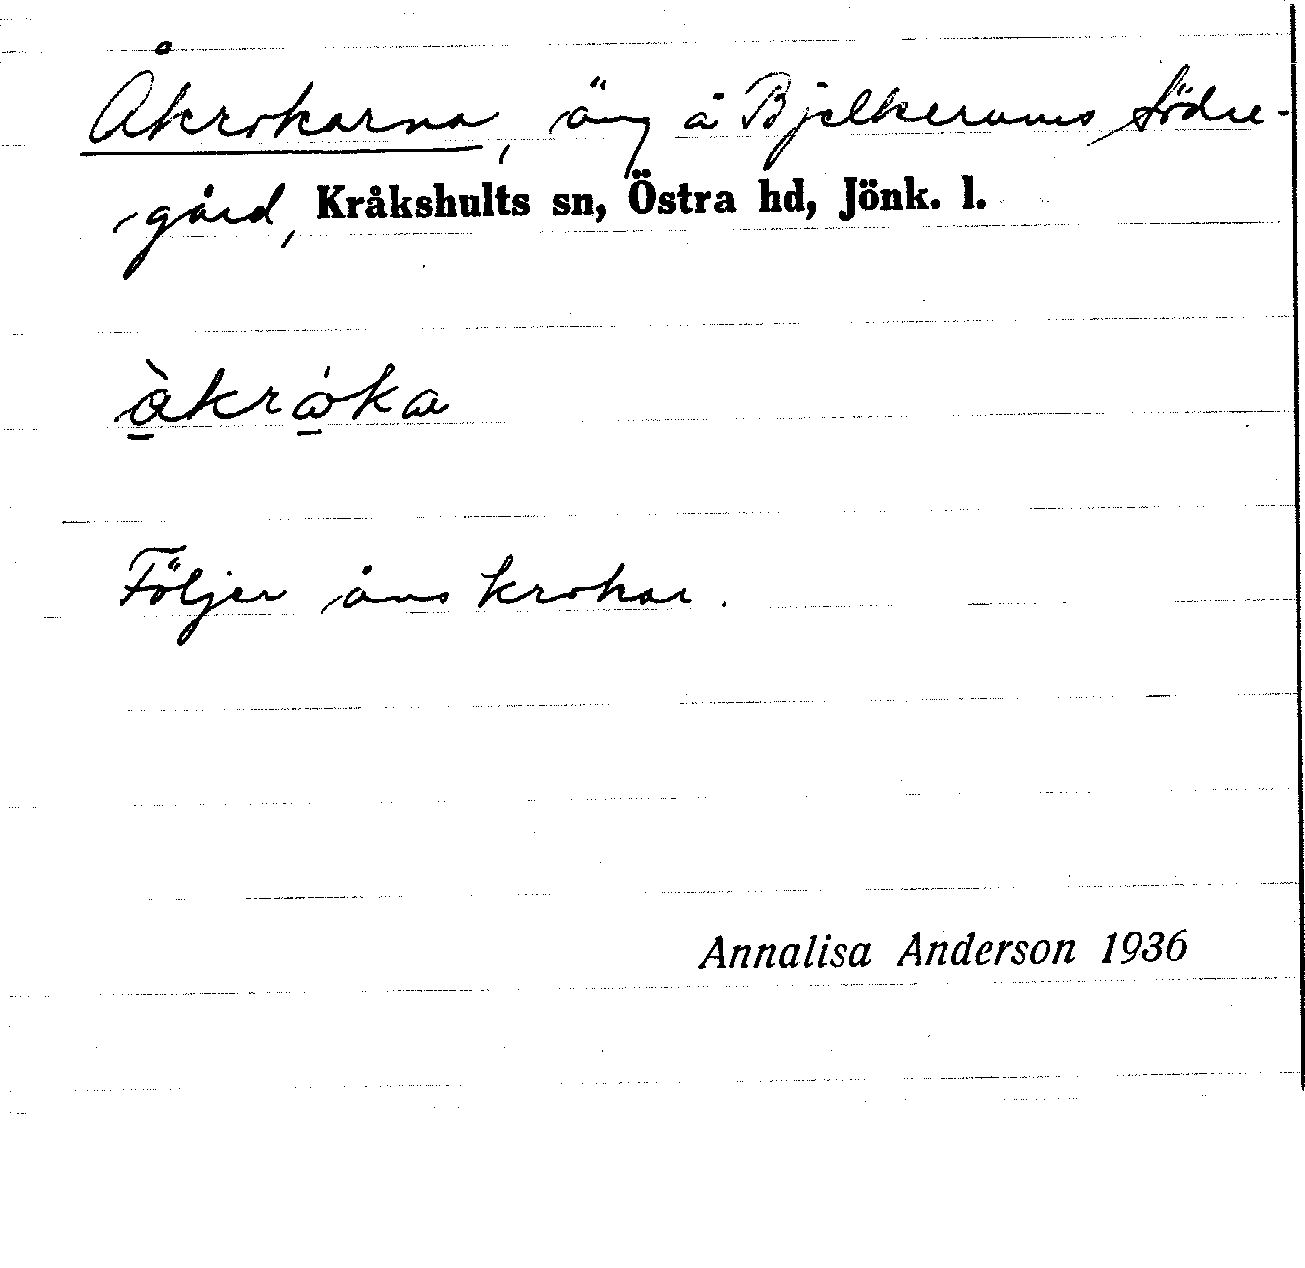 Åkrokarna, äng å Bjelkerums Södre-
gård, Kråkshults sn, Östra hd, Jönk. l.
åkròka
Följer åns krokar.
Annalisa Anderson 1936